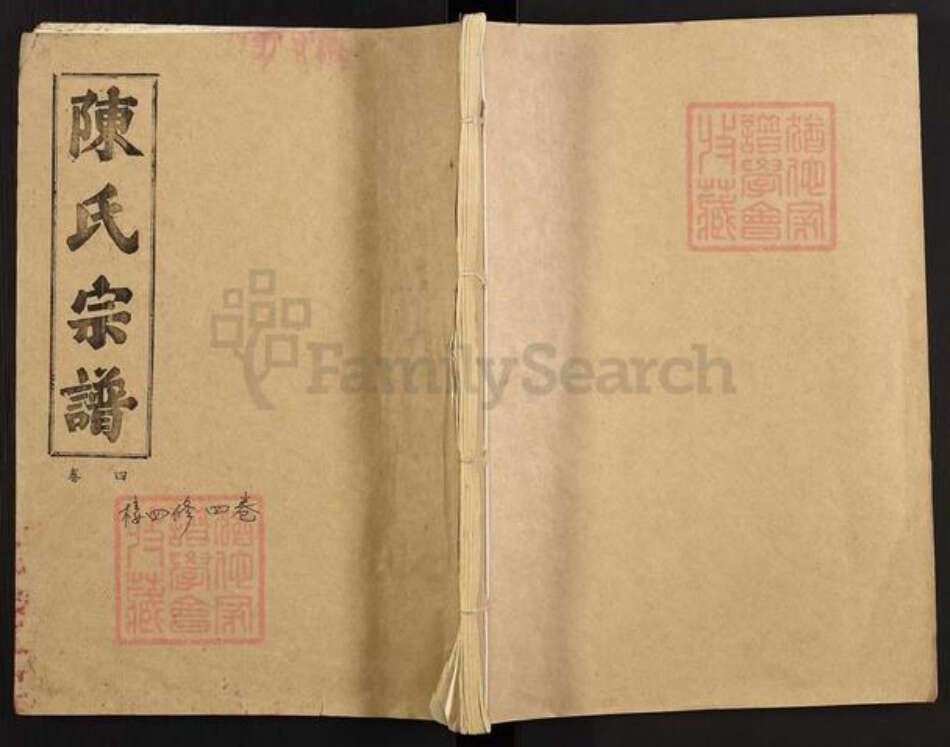 陳氏宗譜
卷四
四修四卷
猶他家
譜學會
收藏
猶他家
譜學會
收藏
FamilySearch